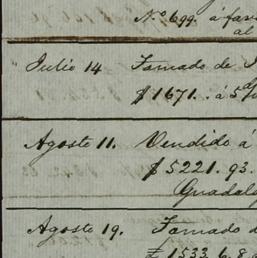 No 699. á fav
al
Julio 14 Tomado de
$1671. á 5 d/
Agosto 11. Vendido á
$5221.93.
Guadal
Agosto 19. Tomado d
£1533.6.8 a